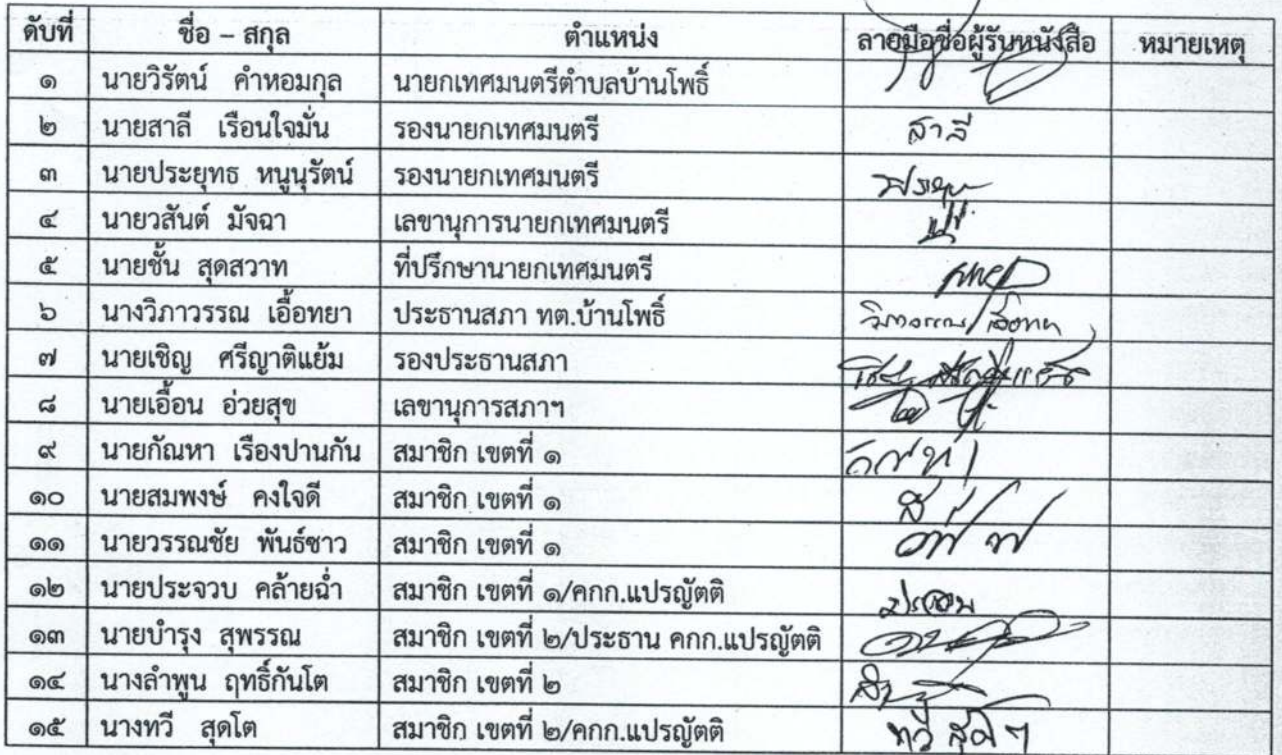 ดับที่ ชื่อ – สกุล ตำแหน่ง ลายมือชื่อผู้รับหนังสือ หมายเหตุ
๑ นายวิรัตน์ คำหอมกุล นายกเทศมนตรีตำบลบ้านโพธิ์
๒ นายสาลี เรือนใจมั่น รองนายกเทศมนตรี สาลี
๓ นายประยุทธ หนูนุรัตน์ รองนายกเทศมนตรี
๔ นายวสันต์ มัจฉา เลขานุการนายกเทศมนตรี
๕ นายชั้น สุดสวาท ที่ปรึกษานายกเทศมนตรี
๖ นางวิภาวรรณ เอื้อทยา ประธานสภา ทต.บ้านโพธิ์ วิภาวรรณ เอื้อทยา
๗ นายเชิญ ศรีญาติแย้ม รองประธานสภา
๘ นายเอื้อน อ่วยสุข เลขานุการสภาฯ
๙ นายกัณหา เรืองปานกัน สมาชิก เขตที่ ๑
๑๐ นายสมพงษ์ คงใจดี สมาชิก เขตที่ ๑
๑๑ นายวรรณชัย พันธ์ชาว สมาชิก เขตที่ ๑
๑๒ นายประจวบ คล้ายฉ่ำ สมาชิก เขตที่ ๑/คกก.แปรญัตติ ประจวบ
๑๓ นายบำรุง สุพรรณ สมาชิก เขตที่ ๒/ประธาน คกก.แปรญัตติ
๑๔ นางลำพูน ฤทธิ์กันโต สมาชิก เขตที่ ๒
๑๕ นางทวี สุดโต สมาชิก เขตที่ ๒/คกก.แปรญัตติ ทวี สุดโต